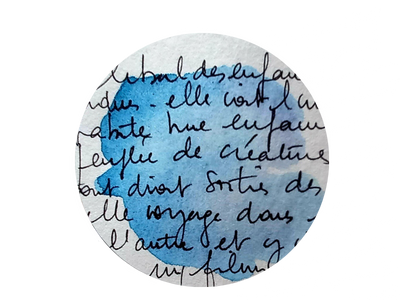 tribal des enfan
dus. elle vont l'un
ante une enfan
peuplée de créatures
ont dirait sorties des
elle voyage dans
l'autre et y
un film